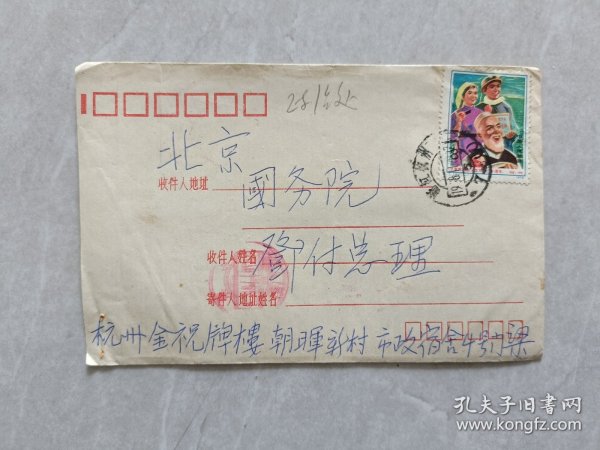 北京
收件人地址 國务院
收件人姓名 鄧付总理
寄件人地址姓名
杭州金祝牌樓朝暉新村市政宿舍4号内梁
孔夫子旧书网
www.kongfz.com